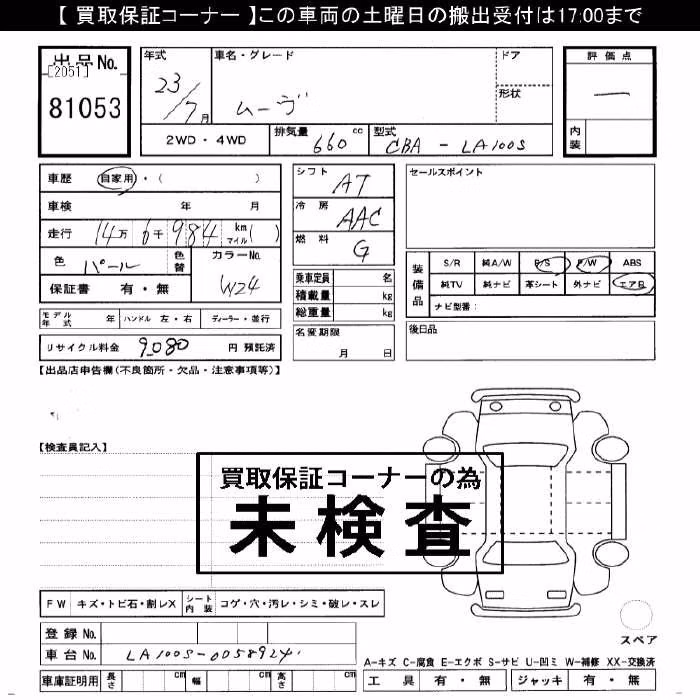 【 買取保証コーナー 】この車両の土曜日の搬出受付は17:00まで
出品No.
[2051]
81053
年式
23/7月
車名・グレード
ムーヴ
ドア
形状
2WD・4WD
排気量 660 cc
型式 CBA - LA100S
評価点
―
内装
車歴 自家用・( )
車検 年 月
走行 14万6千984 km マイル( )
色 パール 色替
カラーNo. W24
保証書 有・無
シフト AT
冷房 AAC
燃料 G
乗車定員 名
積載量 kg
総重量 kg
名変期限
月 日
セールスポイント
装備品
S/R 純A/W P/S P/W ABS
純TV 純ナビ 革シート 外ナビ エアB
ナビ型番:
後日品
モデル年式 年 ハンドル 左・右 ディーラー・並行
リサイクル料金 9,080 円 預託済
【出品店申告欄(不良箇所・欠品・注意事項等)】
【検査員記入】
買取保証コーナーの為
未検査
FW キズ・トビ石・割レX シート内装 コゲ・穴・汚レ・シミ・破レ・スレ
登録No.
車台No. LA100S-0058924
車庫証明用 長さ cm 幅 cm 高さ cm
スペア
A-キズ C-腐食 E-エクボ S-サビ U-凹ミ W-補修 XX-交換済
工具 有・無 ジャッキ 有・無